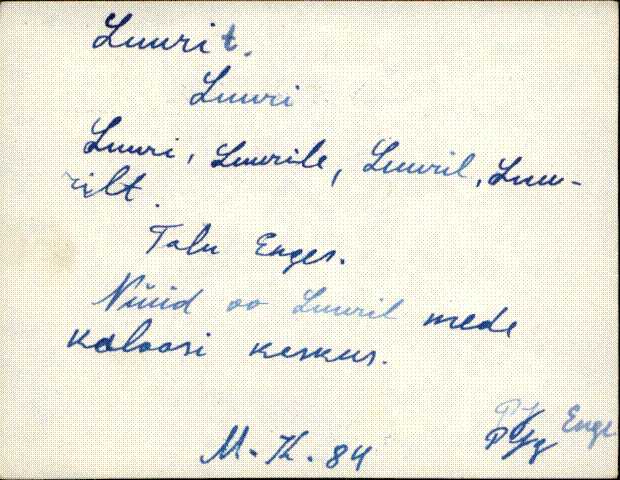 Luurit.
Luuri
Luuri, Luurile, Luuril, Luu-
rilt.
Talu Enges.
Nüüd oo Luuril mede
koloosi keskus.
M. K. 84
Enge